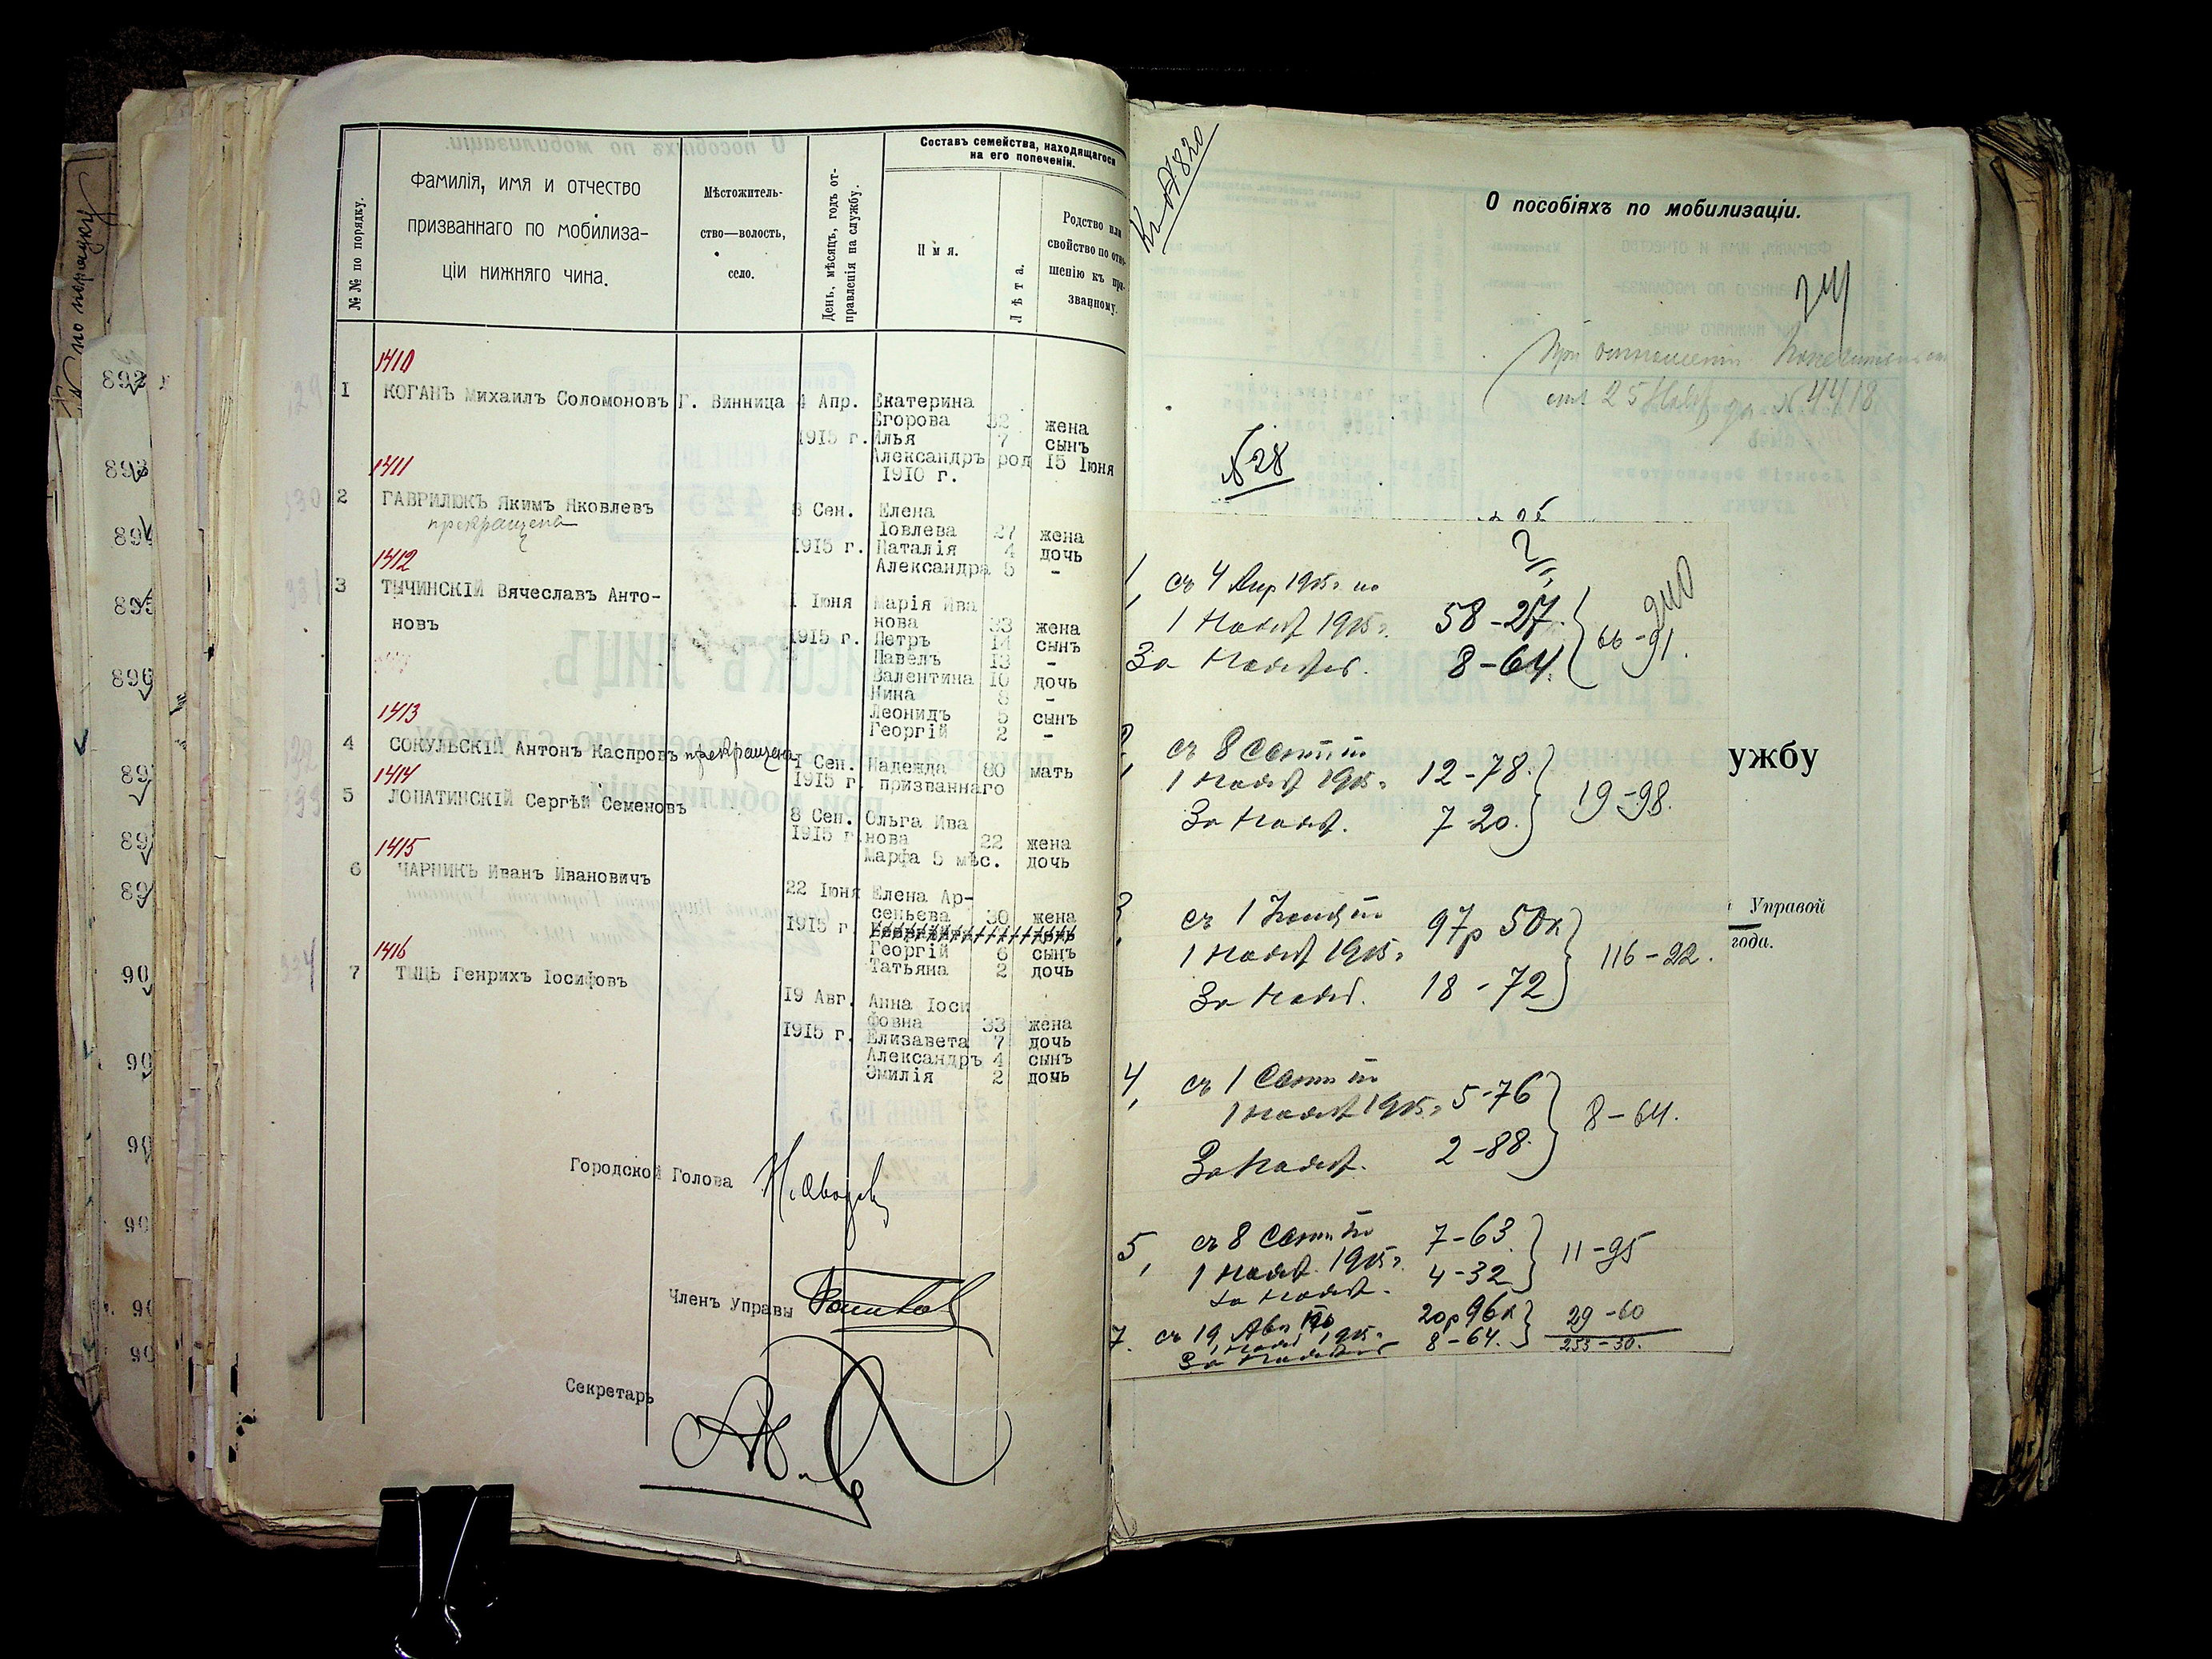 № по порядку
№№ по порядку.
Фамилія, имя и отчество
призваннаго по мобилиза-
ціи нижняго чина.
Мѣстожитель-
ство—волость,
село.
День, мѣсяцъ, годъ от-
правленія на службу.
Составъ семейства, находящагося
на его попеченіи.
Имя.
Лѣта.
Родство или
свойство по отно-
шенію къ при-
званному.
1410
1 КОГАНЪ Михаилъ Соломоновъ Г. Винница 4 Апр. Екатерина
Егорова 32 жена
1915 г. Илья 7 сынъ
Александръ род 15 Іюня
1910 г.
1411
2 ГАВРИЛЮКЪ Якимъ Яковлевъ 8 Сен. Елена
прекращена
Іовлева 27 жена
1915 г. Наталія 4 дочь
Александра 5 -
1412
3 ТЫЧИНСКІЙ Вячеславъ Анто- 1 Іюня Марія Ива
новъ нова 33 жена
1915 г. Петръ 14 сынъ
Павелъ 13 -
Валентина 10 дочь
Нина 8 -
Леонидъ 5 сынъ
Георгій 2 -
1413
4 СОКУЛЬСКІЙ Антонъ Каспровъ прекращена 1 Сен. Надежда 60 мать
1915 г. призваннаго
1414
5 ЛОПАТИНСКІЙ Сергѣй Семеновъ 8 Сен. Ольга Ива
1915 г. нова 22 жена
Марфа 5 мѣс. дочь
1415
6 ЧАРНИКЪ Иванъ Ивановичъ 22 Іюня Елена Ар-
сеньева 30 жена
1915 г.
Георгій 6 сынъ
Татьяна 2 дочь
1416
7 ТЫЦЬ Генрихъ Іосифовъ 19 Авг. Анна Іоси
фовна 33 жена
1915 г. Елизавета 7 дочь
Александръ 4 сынъ
Эмилія 2 дочь
Городской Голова
Членъ Управы
Секретарь
О пособіяхъ по мобилизаціи.
При отношеніи
от 25 Нояб за № 4418
№ 28
1, съ 4 Апр 1915 г. по
1 Нояб 1915 г. 58-27.
За Нояб. 8-64. } 66-91.
2, съ 8 Сент по
1 Нояб 1915 г. 12-78.
За Нояб. 7-20. } 19-98.
3, съ 1 Іюня по
1 Нояб 1915 г. 97р 50к
За Нояб. 18-72 } 116-22.
4, съ 1 Сент по
1 Нояб 1915 г. 5-76
За Нояб. 2-88. } 8-64.
5, съ 8 Сент по 7-63
1 Нояб. 1915 г. 4-32 } 11-95
за Нояб.
7. съ 19 Авг по 20р 96к } 29-60
1 Нояб 1915 г. 8-64.
За Нояб 253-30.
ужбу
Управой
года.